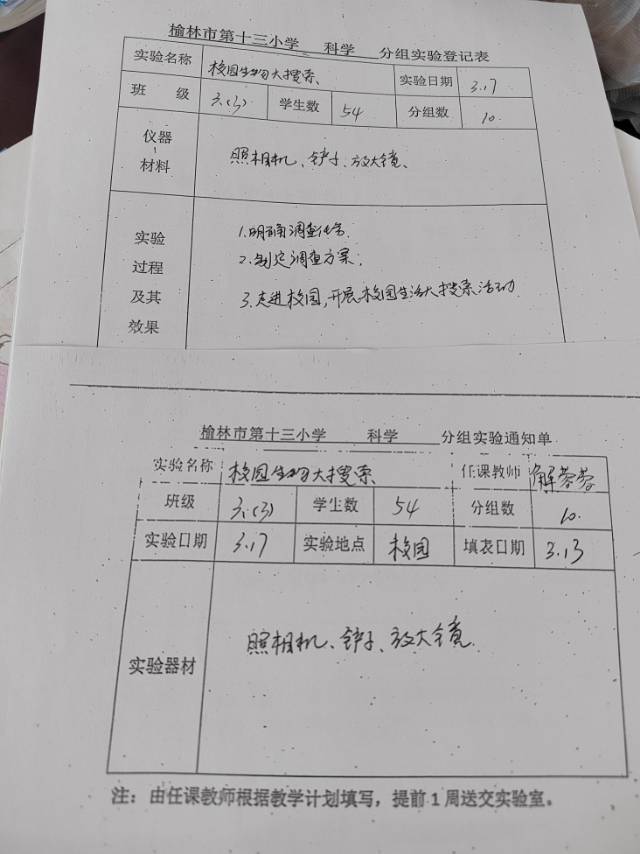 榆林市第十三小学 科学 分组实验登记表
实验名称 校园生物大搜索 实验日期 3.17
班级 3.(3) 学生数 54 分组数 10.
仪器、材料 照相机、铲子、放大镜、
实验过程及其效果
1.明确调查任务.
2.制定调查方案.
3.走进校园,开展校园生活大搜索活动
榆林市第十三小学 科学 分组实验通知单
实验名称 校园生物大搜索 任课教师 解蓉蓉
班级 3.(3) 学生数 54 分组数 10.
实验日期 3.17 实验地点 校园 填表日期 3.13
实验器材 照相机、铲子、放大镜.
注：由任课教师根据教学计划填写，提前1周送交实验室。